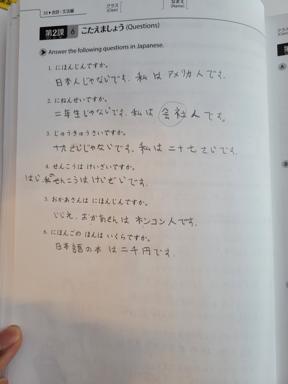 38 ▶会話・文法編
クラス
(Class)
なまえ
(Name)
第2課 6 こたえましょう (Questions)
Answer the following questions in Japanese.
1. にほんじんですか。
日本人じゃないです。私は アメリカ人です。
2. にねんせいですか。
二年生じゃないです。私は 会社人です。
3. じゅうきゅうさいですか。
十九さいじゃないです。私は二十七さいです。
4. せんこうは けいざいですか。
はい 私のせんこうは けいざいです。
5. おかあさんは にほんじんですか。
いいえ、おかあさんは ホンコン人です。
6. にほんごの ほんは いくらですか。
日本語の本 は 二千円です。